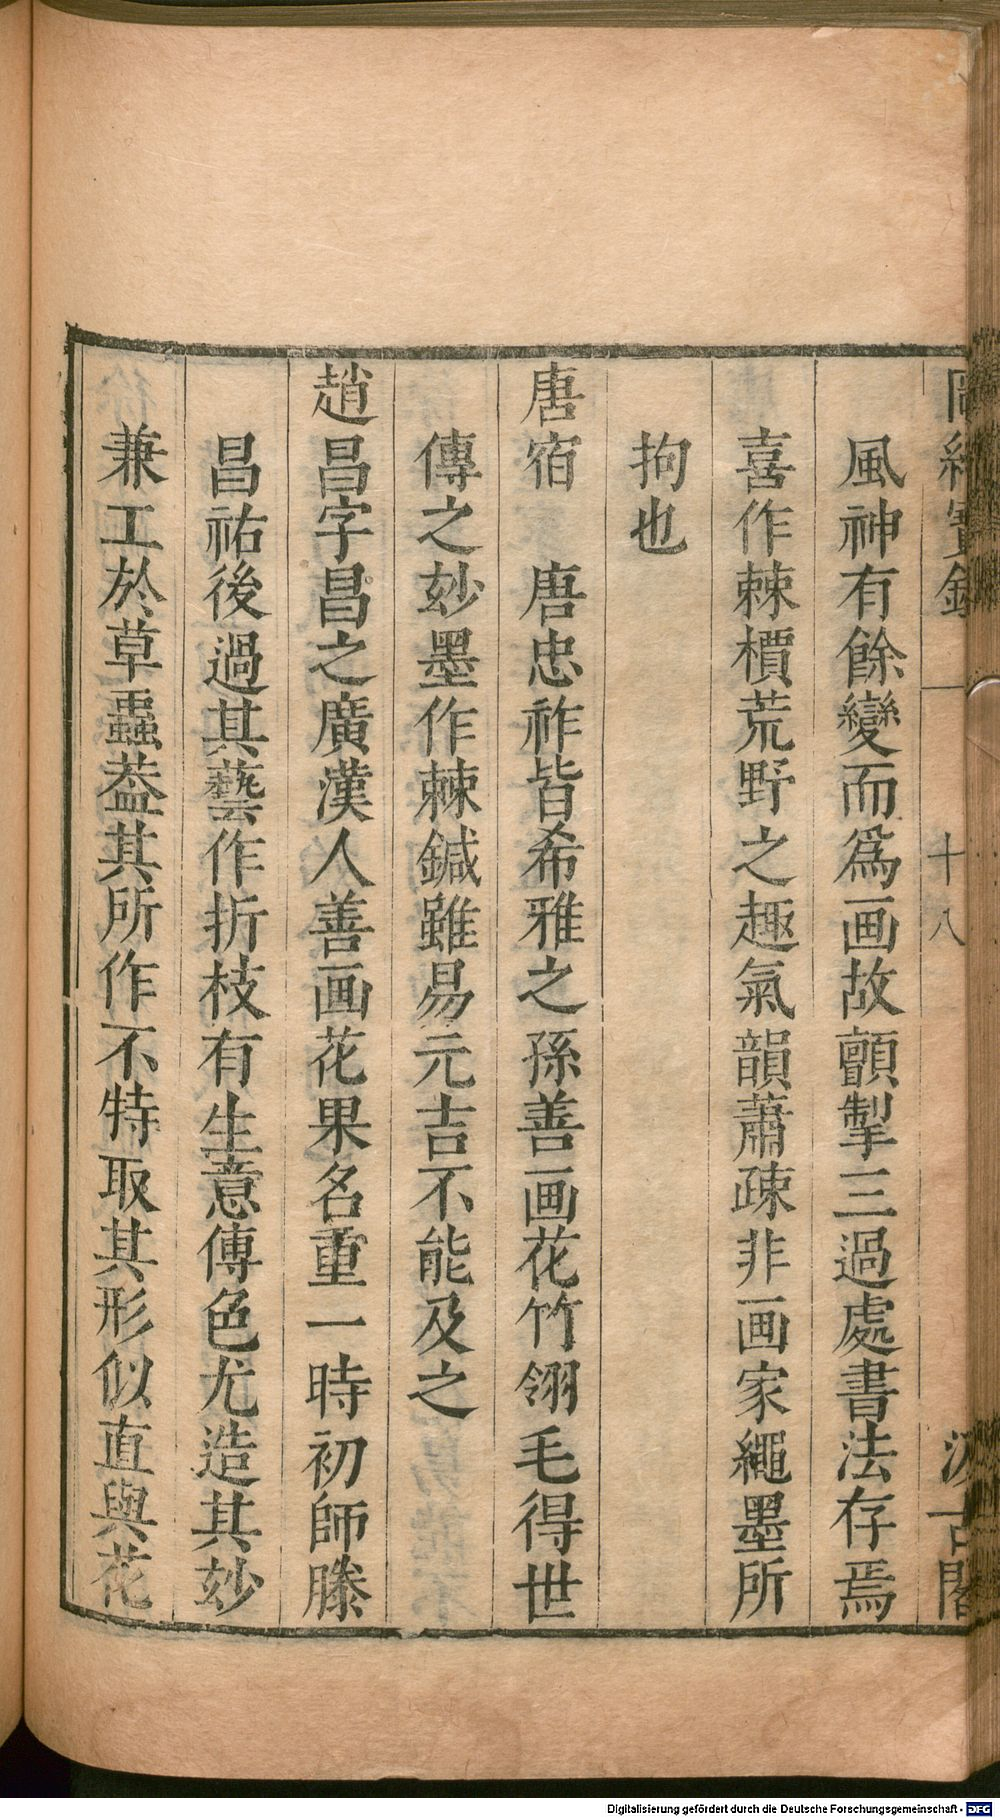 圖繪寶鑑 十八 汲古閣
風神有餘變而爲画故顫掣三過處書法存焉
喜作棘檟荒野之趣氣韻蕭疎非画家繩墨所
拘也
唐宿 唐忠祚皆希雅之孫善画花竹翎毛得世
傳之妙墨作棘鍼雖易元吉不能及之
趙昌字昌之廣漢人善画花果名重一時初師滕
昌祐後過其藝作折枝有生意傳色尤造其妙
兼工於草蟲葢其所作不特取其形似直與花
Digitalisierung gefördert durch die Deutsche Forschungsgemeinschaft - DFG